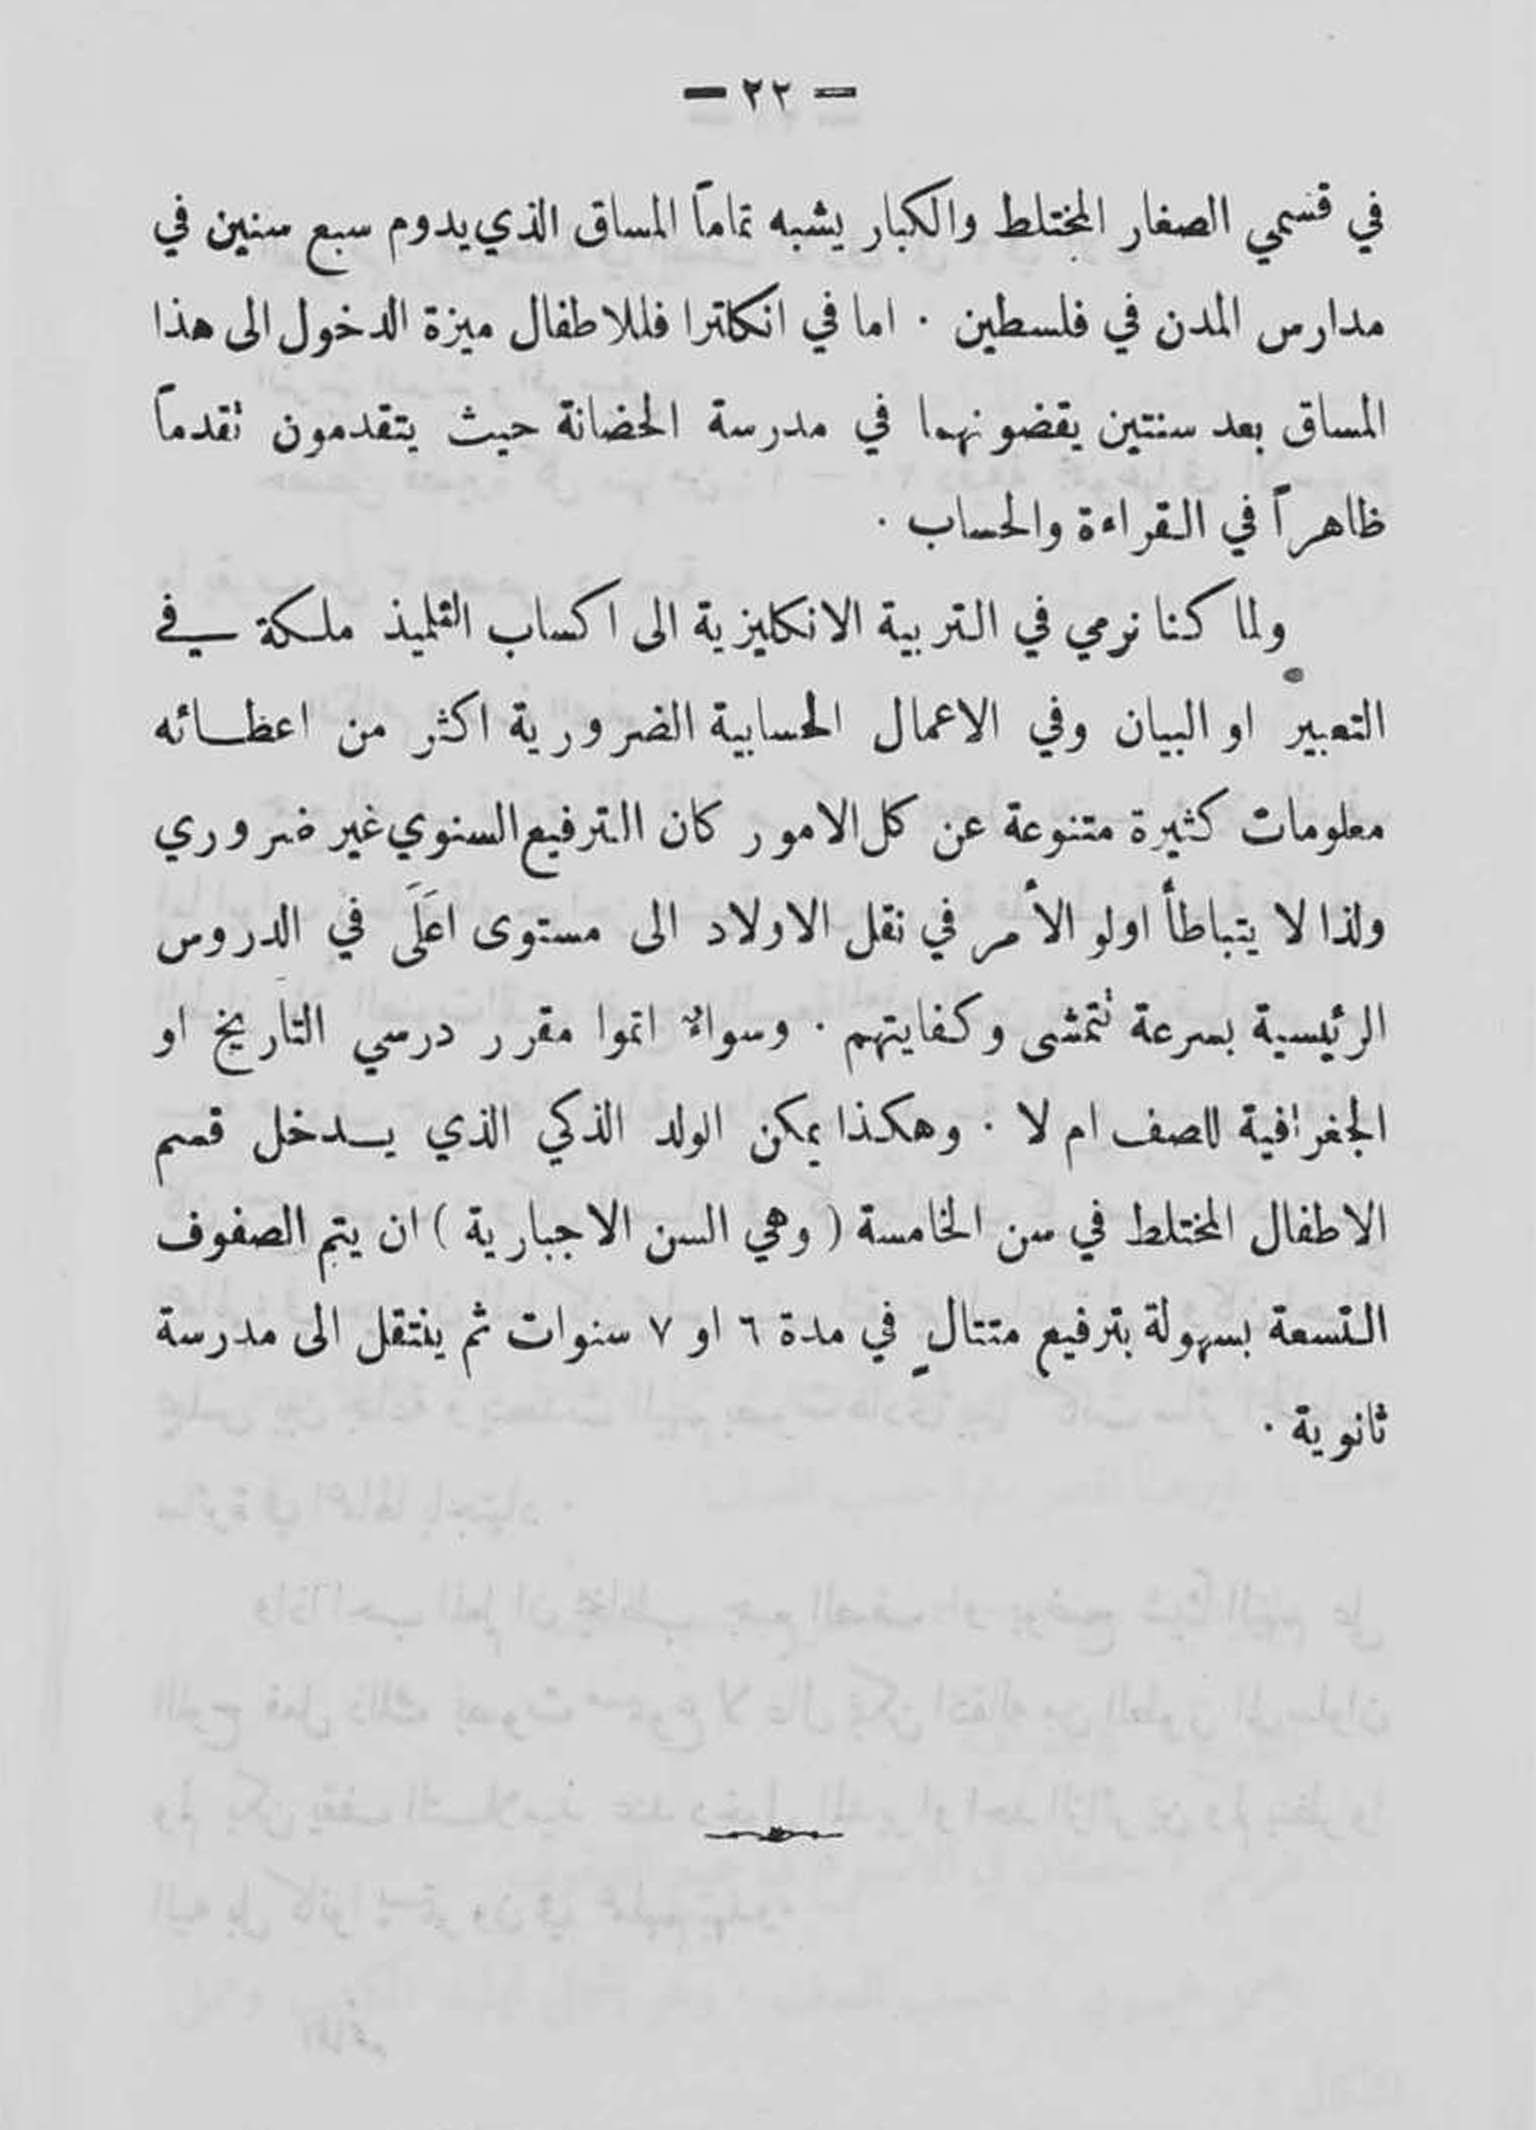 — ٢٢ —
في قسمي الصغار المختلط والكبار يشبه تماماً المساق الذي يدوم سبع سنين في
مدارس المدن في فلسطين . اما في انكلترا فللاطفال ميزة الدخول الى هذا
المساق بعد سنتين يقضونهما في مدرسة الحضانة حيث يتقدمون تقدماً
ظاهراً في القراءة والحساب .
ولما كنا نرمي في التربية الانكليزية الى اكساب التلميذ ملكة في
التعبير او البيان وفي الاعمال الحسابية الضرورية اكثر من اعظائه
معلومات كثيرة متنوعة عن كل الامور كان الترفيع السنوي غير ضروري
ولذا لا يتباطأ اولو الأمر في نقل الاولاد الى مستوى اعَلَى في الدروس
الرئيسية بسرعة تتمشى وكفايتهم . وسواءٌ اتموا مقرر درسي التاريخ او
الجغرافية للصف ام لا . وهكذا يمكن الولد الذكي الذي يدخل قسم
الاطفال المختلط في سن الخامسة ( وهي السن الاجبارية ) ان يتم الصفوف
التسعة بسهولة بترفيع متتالٍ في مدة ٦ او ٧ سنوات ثم ينتقل الى مدرسة
ثانوية .